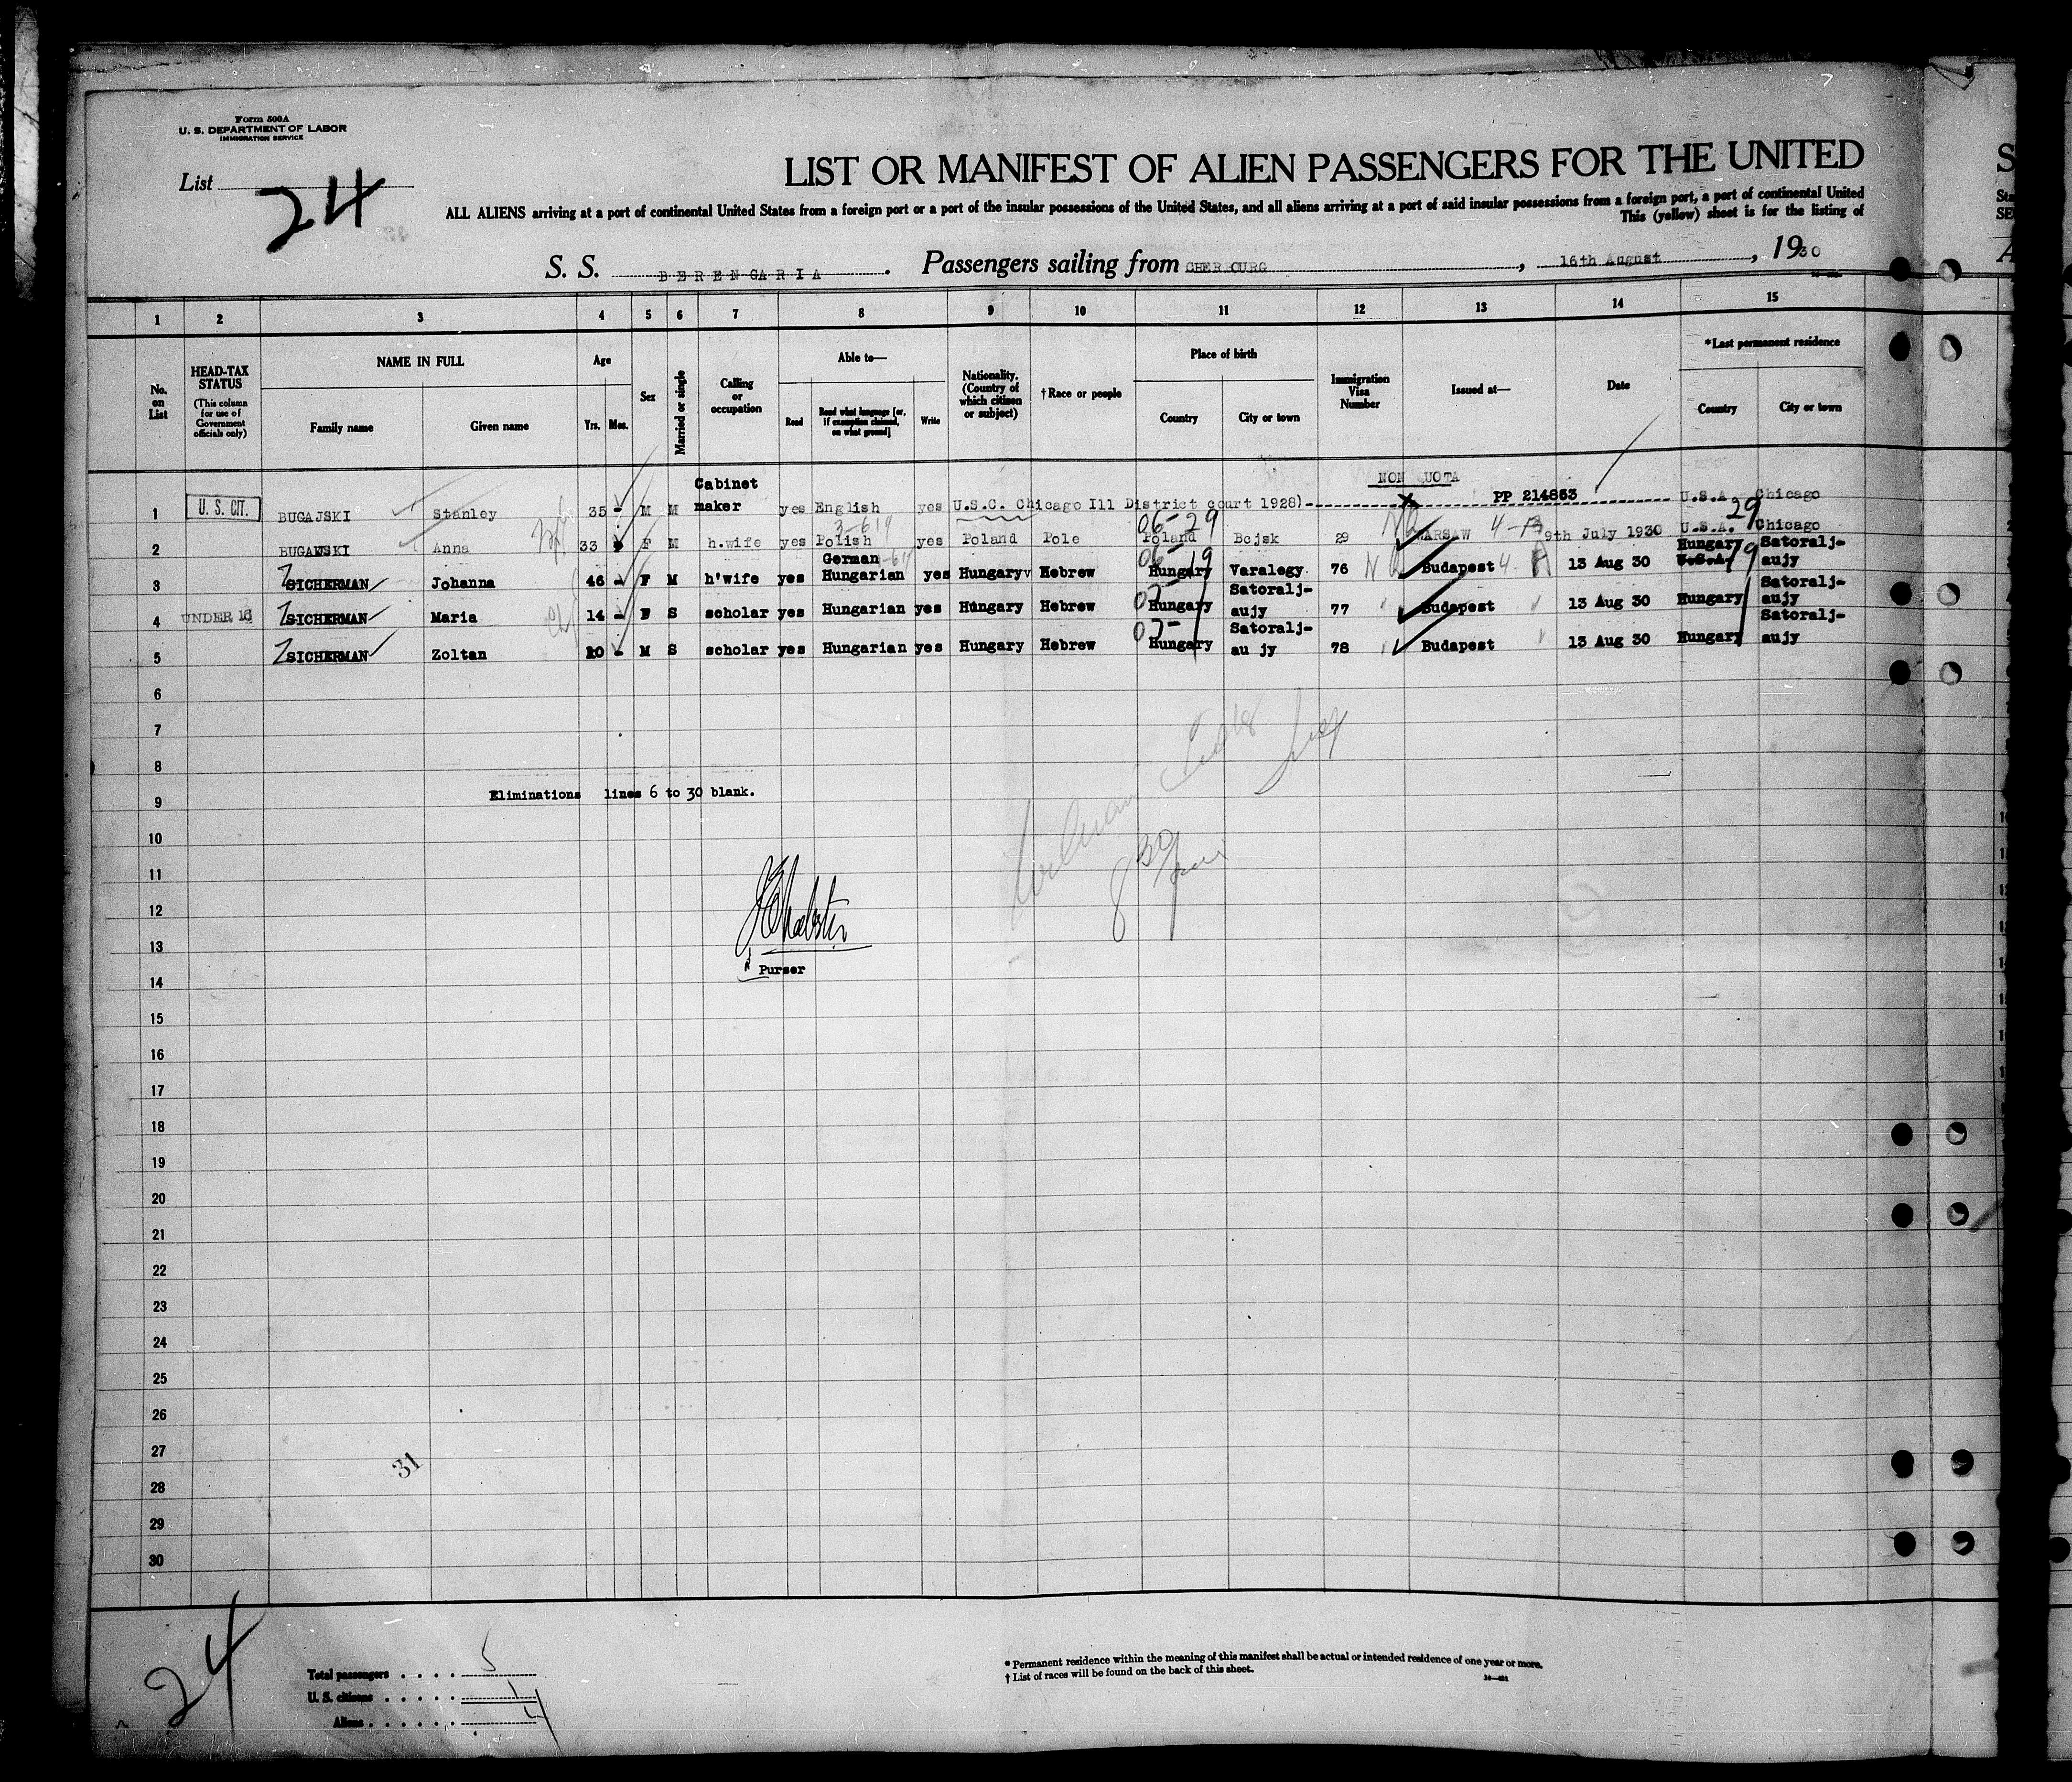 Form 500A
U. S. DEPARTMENT OF LABOR
IMMIGRATION SERVICE
List 24
LIST OR MANIFEST OF ALIEN PASSENGERS FOR THE UNITED
ALL ALIENS arriving at a port of continental United States from a foreign port or a port of the insular possessions of the United States, and all aliens arriving at a port of said insular possessions from a foreign port, a port of continental United
This (yellow) sheet is for the listing of
S. S. BERENGARIA. Passengers sailing from CHERBOURG, 16th August, 1930
1 2 3 4 5 6 7 8 9 10 11 12 13 14 15
No. on List
HEAD-TAX STATUS
(This column for use of Government officials only)
NAME IN FULL
Family name Given name
Age
Yrs. Mos.
Sex
Married or single
Calling or occupation
Able to—
Read
Read what language [or, if exemption claimed, on what ground]
Write
Nationality. (Country of which citizen or subject)
†Race or people
Place of birth
Country City or town
Immigration Visa Number
Issued at—
Date
*Last permanent residence
Country City or town
NON QUOTA
1 U. S. CIT. BUGAJSKI Stanley 35 - M M Cabinet maker yes English yes U.S.C. Chicago Ill District court 1928) PP 214863 U.S.A. Chicago
2 BUGAJSKI Anna 33 F M h.wife yes Polish yes Poland Pole 06-29 Poland Bojsk 29 WARSAW 9th July 1930 U.S.A. 29 Chicago
3 SICHERMAN Johanna 46 - F M h'wife yes German Hungarian yes Hungary Hebrew Hungary Varalegy 76 Budapest 13 Aug 30 Hungary U.S.A. Satoralj-aujy
4 UNDER 16 SICHERMAN Maria 14 - F S scholar yes Hungarian yes Hungary Hebrew Hungary Satoralj-aujy 77 Budapest 13 Aug 30 Hungary Satoralj-aujy
5 SICHERMAN Zoltan 10 - M S scholar yes Hungarian yes Hungary Hebrew Hungary Satoralj-au jy 78 Budapest 13 Aug 30 Hungary Satoralj-aujy
6
7
8
9
Eliminations lines 6 to 30 blank.
10
11
12
13
Purser
14
15
16
17
18
19
20
21
22
23
24
25
26
27
31
28
29
30
24
Total passengers . . . . 5
U. S. citizens . . . . . 1
Aliens . . . . . . 4
* Permanent residence within the meaning of this manifest shall be actual or intended residence of one year or more.
† List of races will be found on the back of this sheet.